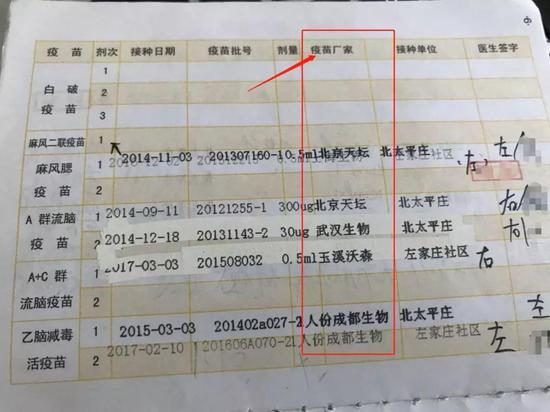 疫 苗 剂次 接种日期 疫苗批号 剂量 疫苗厂家 接种单位 医生签字
白 破 疫 苗 1
2
3
麻风二联疫苗 1 2014-11-03 201307160-1 0.5ml 北京天坛 北太平庄 左
麻风腮 疫 苗 1 左家庄社区 右
2
A 群流脑 疫 苗 1 2014-09-11 20121255-1 300ug 北京天坛 北太平庄 右
2 2014-12-18 20131143-2 30ug 武汉生物 北太平庄
A+C 群 流脑疫苗 1 2017-03-03 201508032 0.5ml 玉溪沃森 左家庄社区 右
2
乙脑减毒 活疫苗 1 2015-03-03 201402a027-2 1人份 成都生物 北太平庄 左
2 2017-02-10 201606A070-2 1人份 成都生物 左家庄社区 左